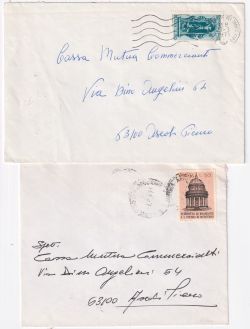 Cassa Mutua Commercianti
Via Dino Angelini 54
63100 Ascoli Piceno
Spett.
Cassa Mutua Commercianti
Via Dino Angelini 54
63100 Ascoli Piceno